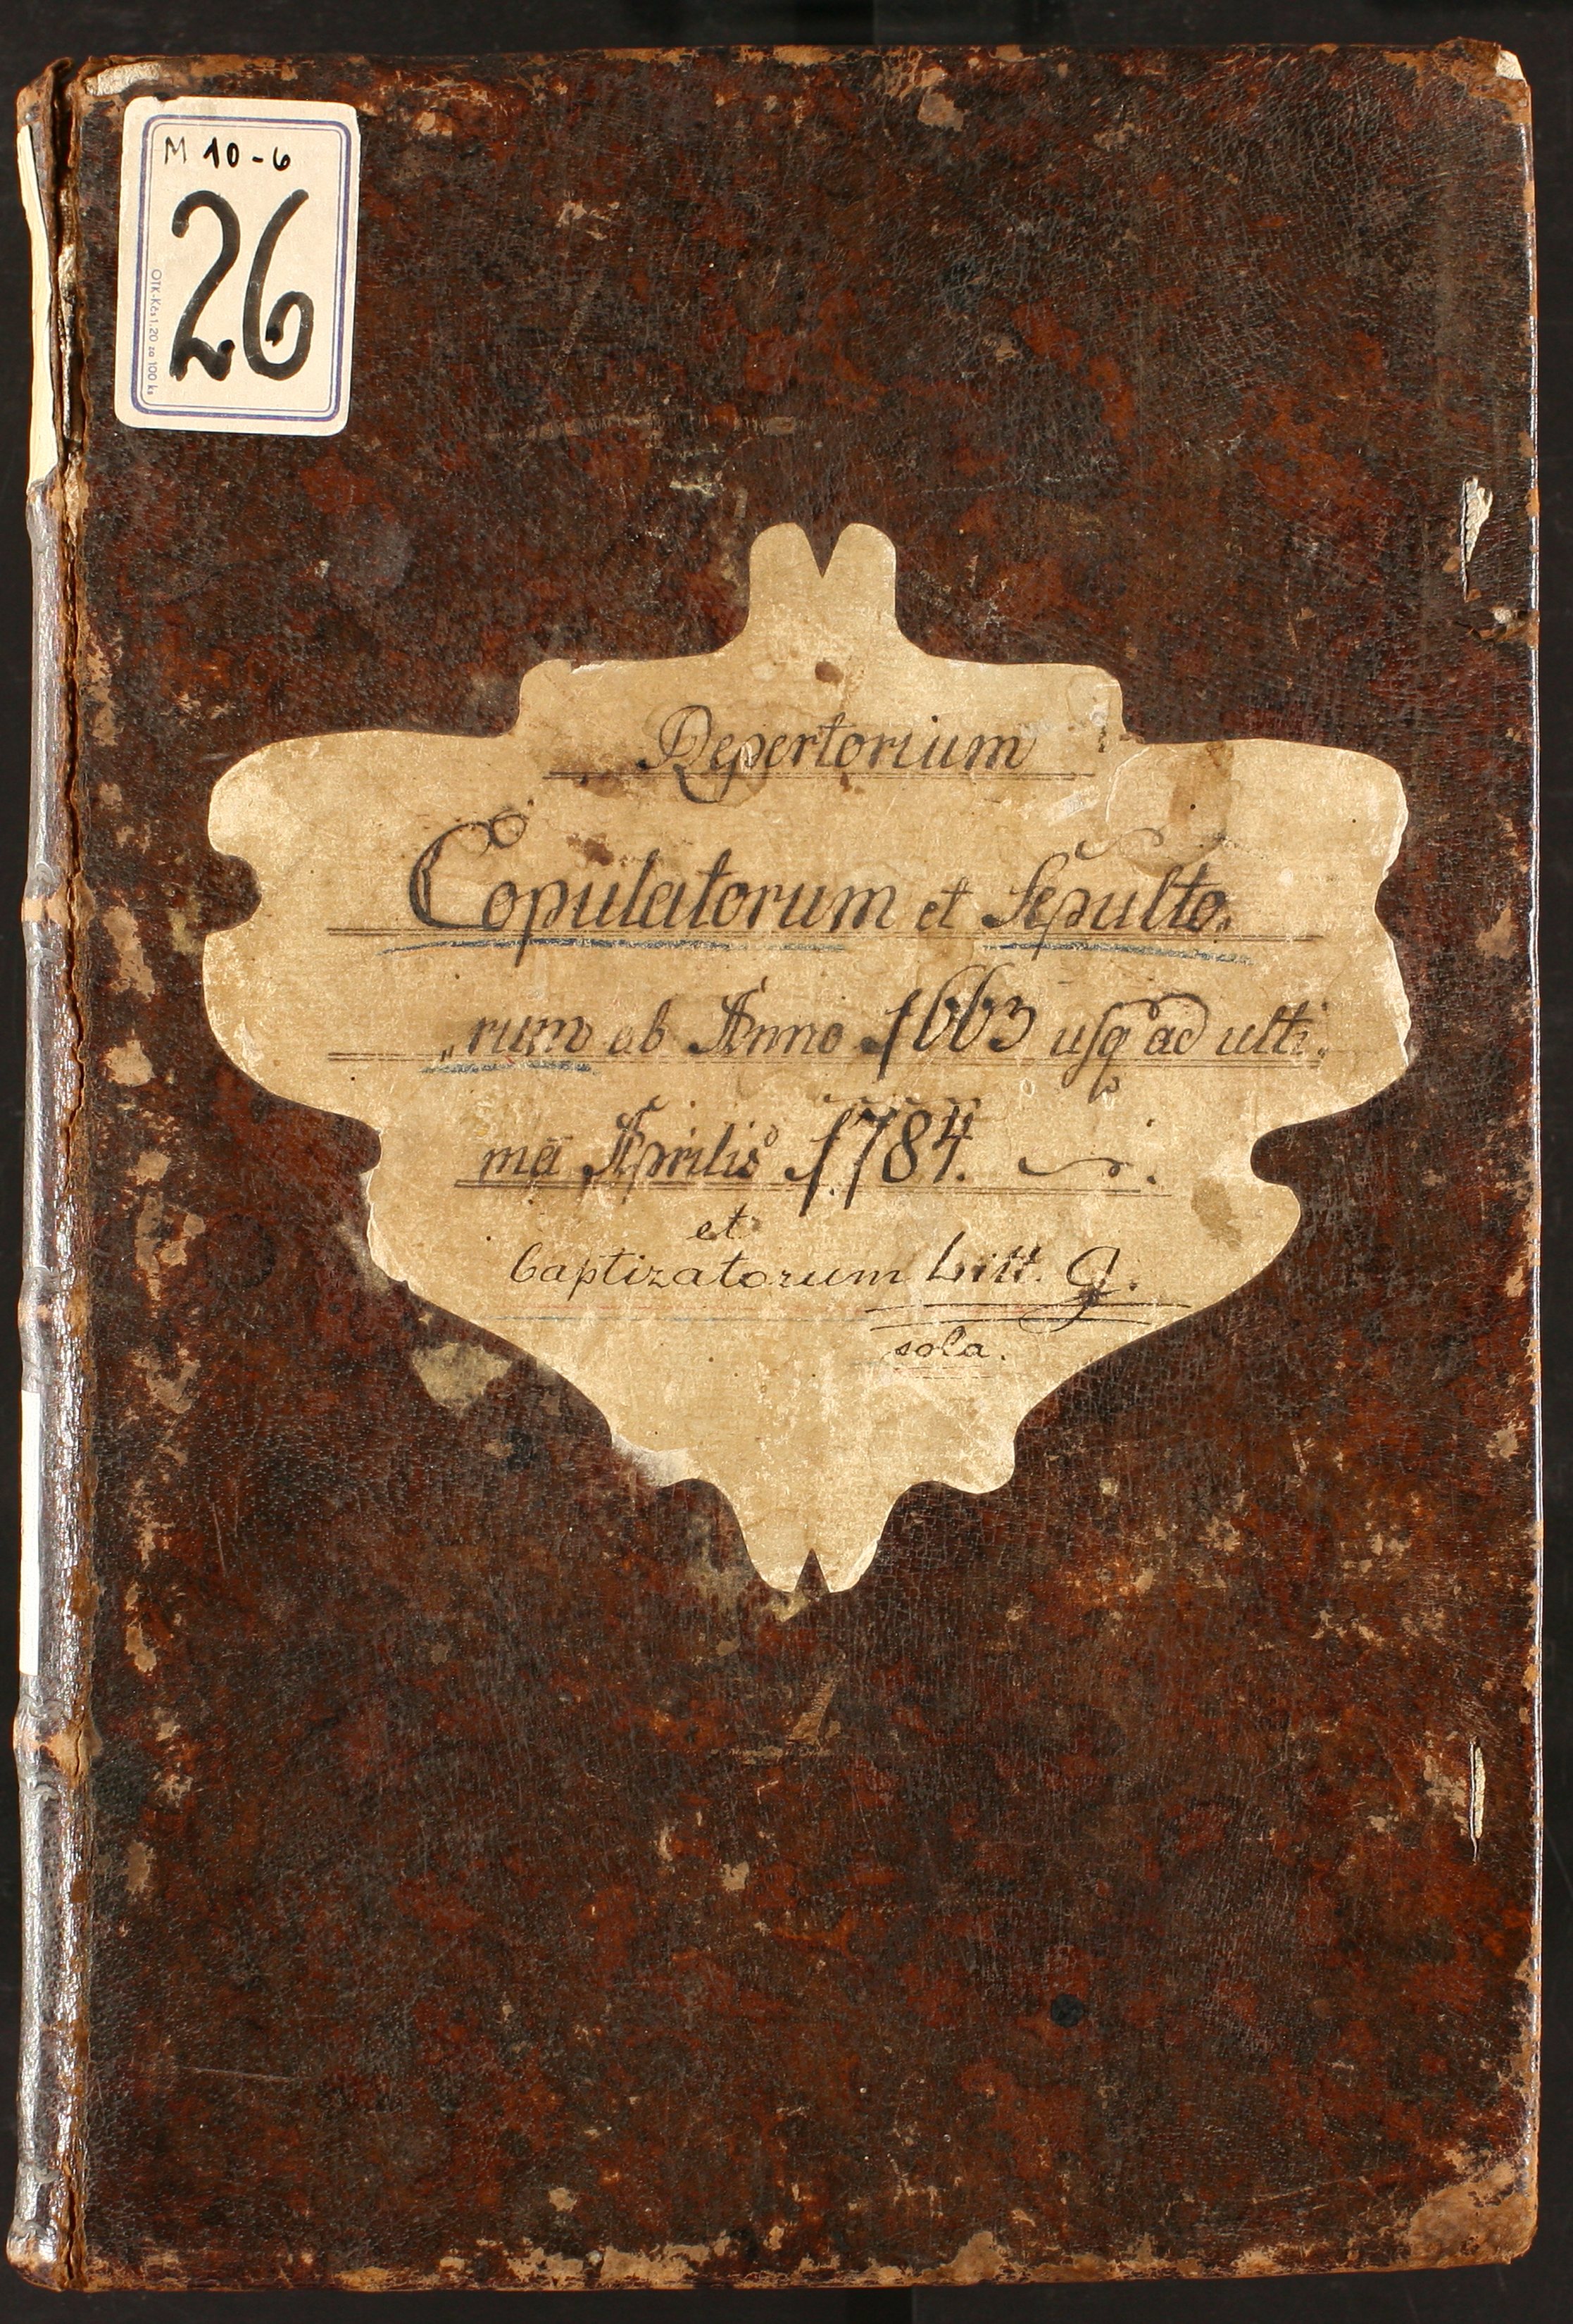 M 10-6
26
OTK-Kčs 1,20 za 100 ks
Repertorium
Copulatorum et Sepulto„
„rum ab Anno 1663 usq ad ulti„
ma Aprilis 1784.
et
baptizatorum Litt. G.
sola.